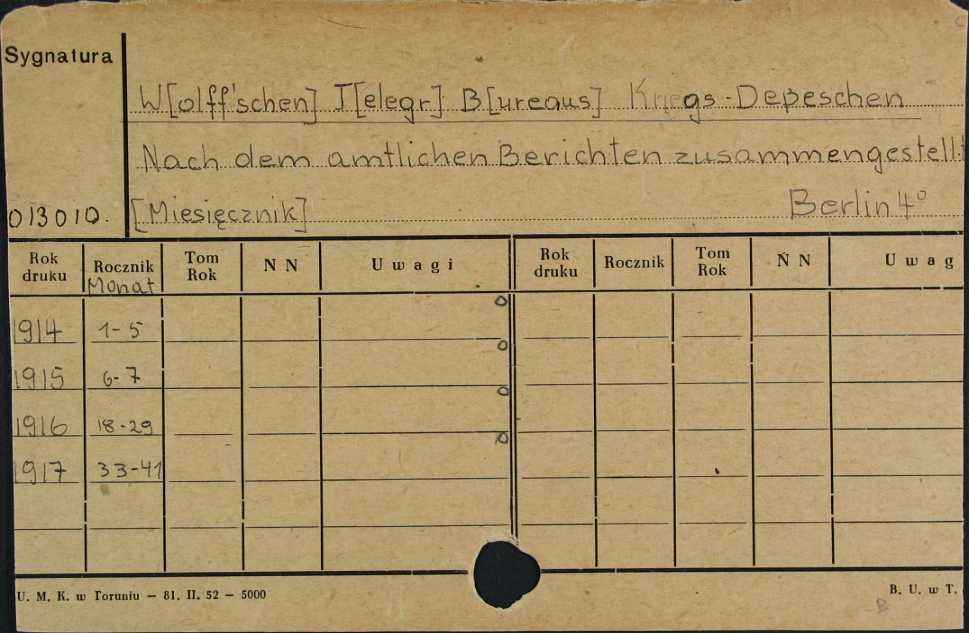 Sygnatura
W[olff'schen] T[elegr] B[ureaus] Kriegs-Depeschen
Nach dem amtlichen Berichten zusammengestellt
013010. [Miesięcznik] Berlin 4°
Rok druku Rocznik Monat Tom Rok N N Uwagi Rok druku Rocznik Tom Rok N N Uwag
1914 1-5
1915 6-7
1916 18-29
1917 33-41
U. M. K. w Toruniu — 81. II. 52 — 5000 B. U. w T.
B